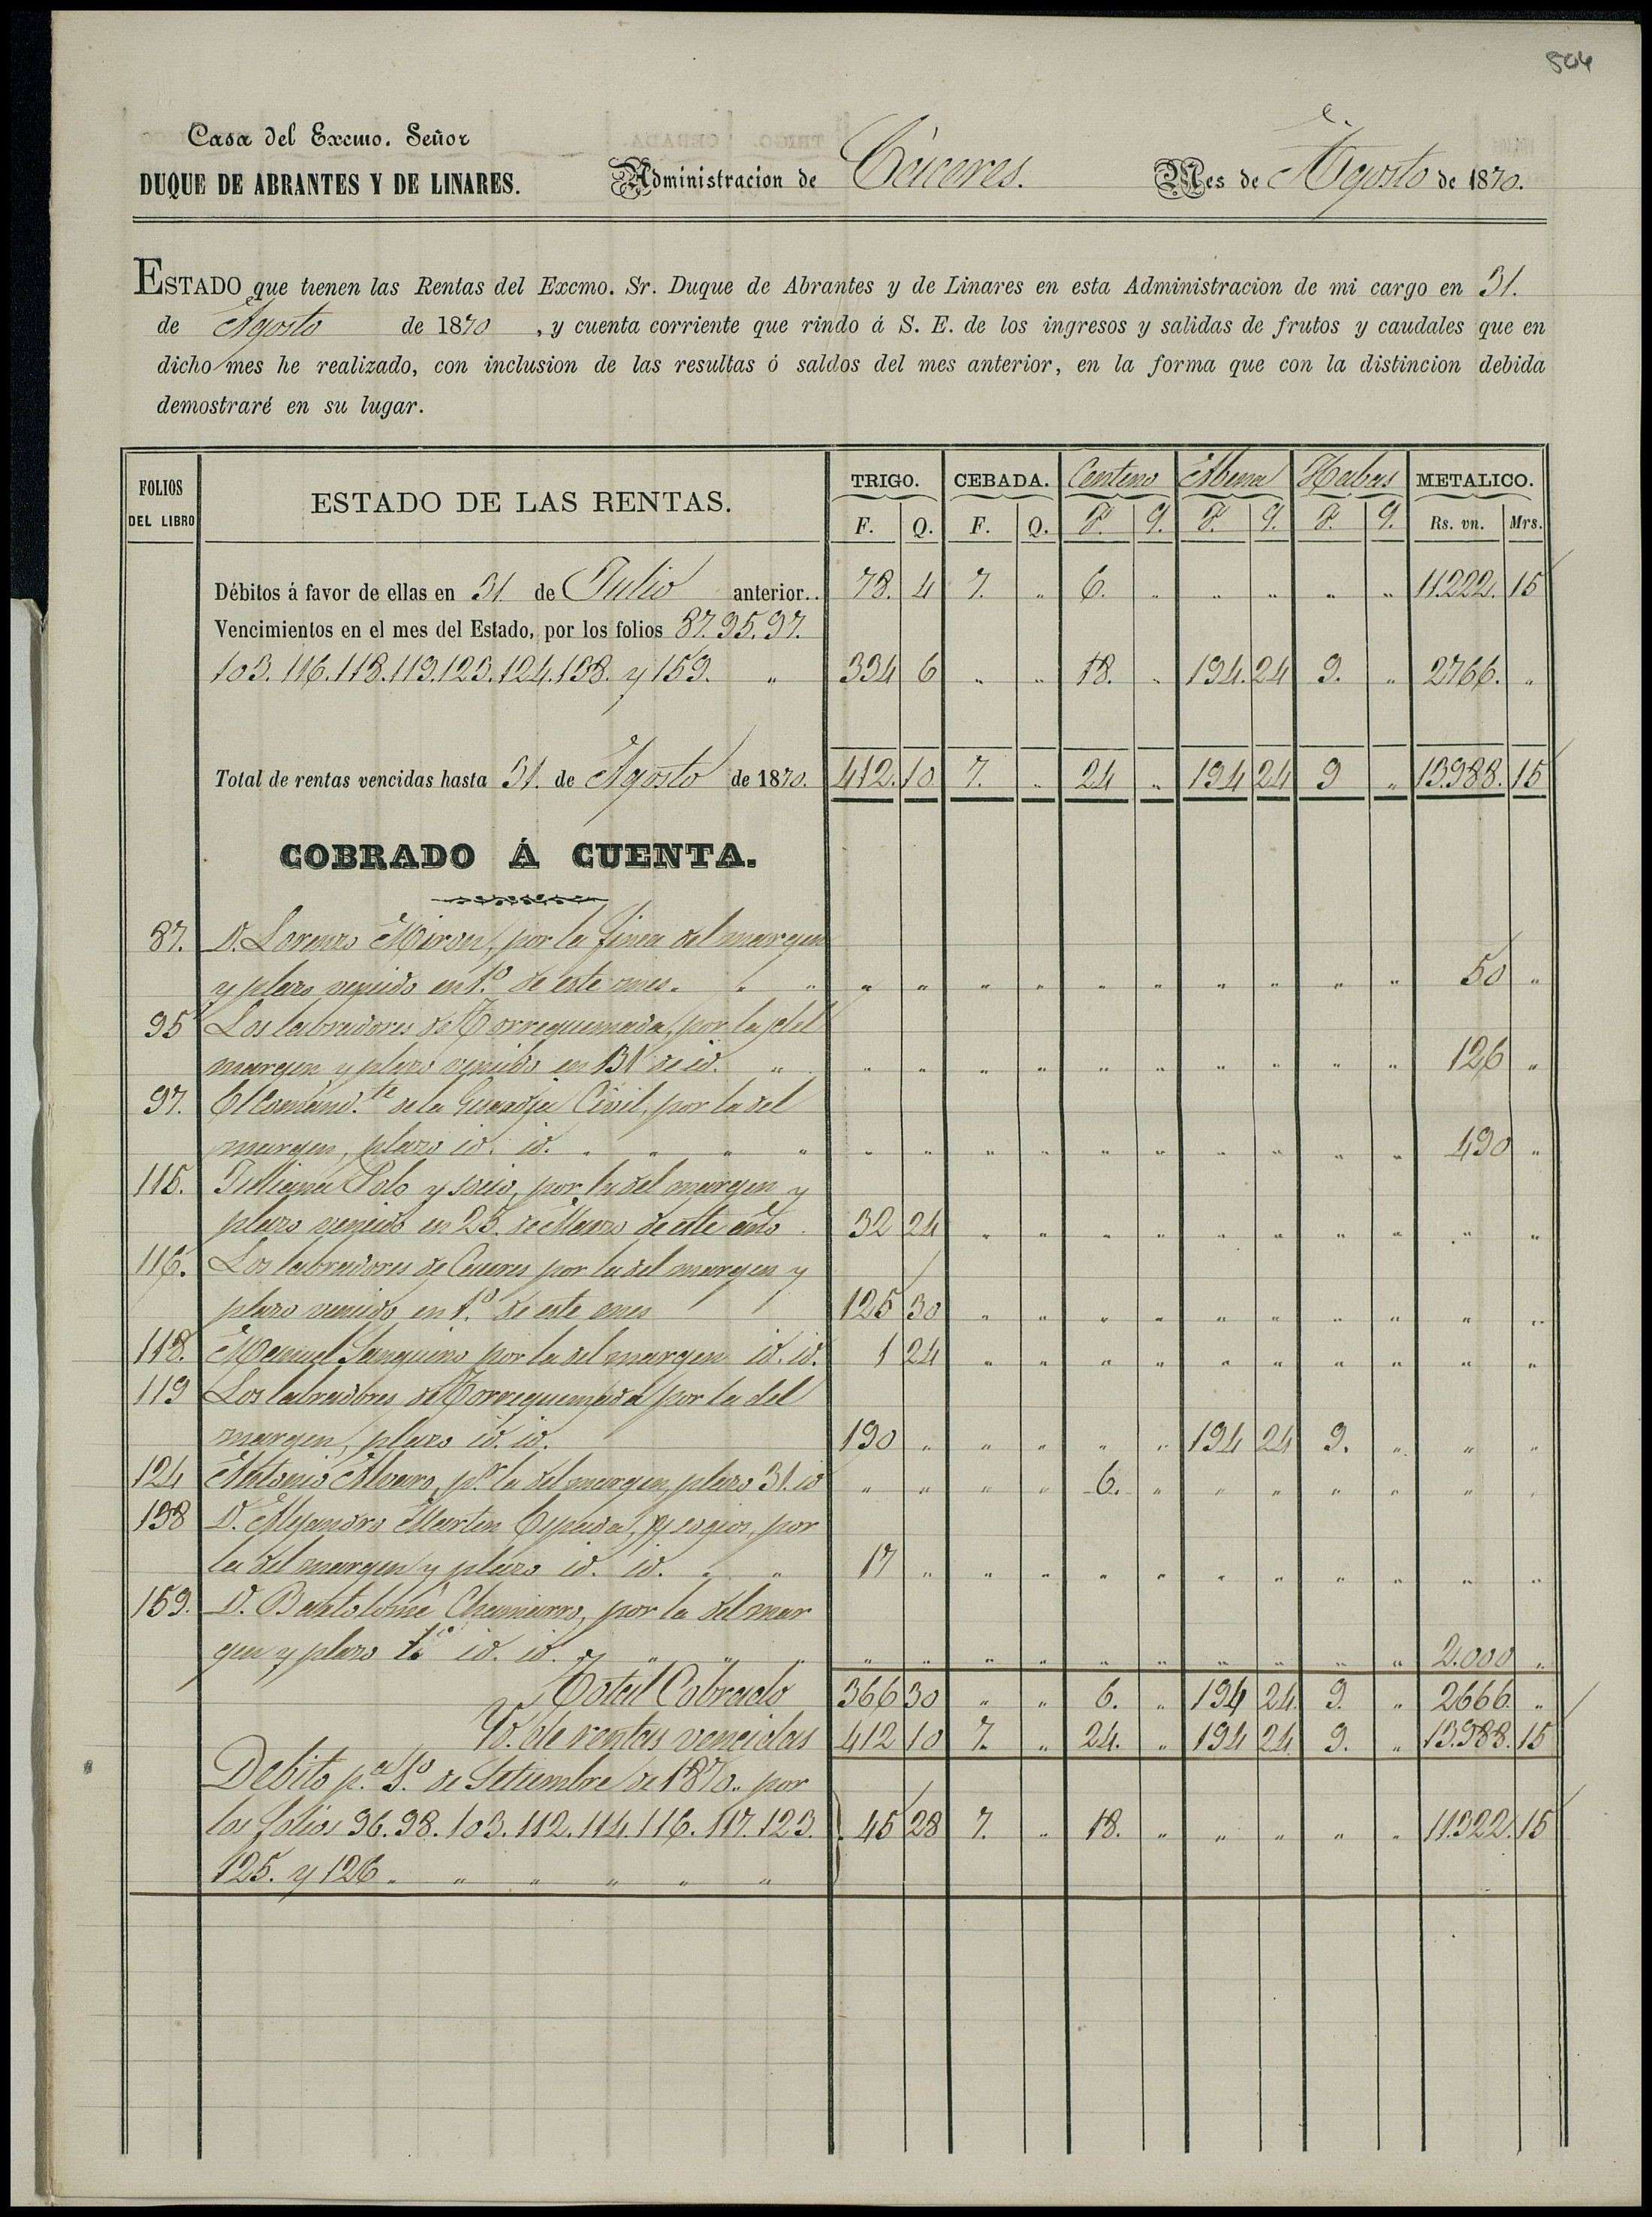 504
Casa del Excmo. Señor
DUQUE DE ABRANTES Y DE LINARES.
Administracion de Cáceres.
Mes de Agosto de 1870.
ESTADO que tienen las Rentas del Excmo. Sr. Duque de Abrantes y de Linares en esta Administracion de mi cargo en 31.
de Agosto de 1870, y cuenta corriente que rindo á S. E. de los ingresos y salidas de frutos y caudales que en
dicho mes he realizado, con inclusion de las resultas ó saldos del mes anterior, en la forma que con la distincion debida
demostraré en su lugar.
FOLIOS DEL LIBRO ESTADO DE LAS RENTAS. TRIGO. CEBADA. Centeno Abena Habas METALICO.
F. Q. F. Q. F. Q. F. Q. F. Q. Rs. vn. Mrs.
Débitos á favor de ellas en 31 de Julio anterior.. 78. 4 7. " 6. " " " " " 11.222. 15
Vencimientos en el mes del Estado, por los folios 87. 95. 97.
103. 116. 118. 119. 123. 124. 138. y 159. " 334 6 " " 18. " 194. 24 9. " 2766. "
Total de rentas vencidas hasta 31. de Agosto de 1870. 412. 10 7. " 24 " 194 24 9 " 13.988. 15
COBRADO Á CUENTA.
87. D. Lorenzo Miron, por la finca del margen
y plazo vencido en 1.º de este mes. " " " " " " " " " " " " 50 "
95 Los labradores de Torrequemada, por la del
margen y plazo vencido en 31 de id. " " " " " " " " " " " 126 "
97. El Comand.te de la Guardia Civil, por la del
margen, plazo id. id. " " " " " " " " " " " " " 490 "
115. Julliana Polo y socio, por la del margen y
plazo vencido en 25. de Marzo de este año. 32 24 " " " " " " " " " "
116. Los labradores de Caceres por la del margen y
plazo vencido en 1.º de este mes 125 30 " " " " " " " " " "
118. Manuel Sanguino por la del margen id. id. 1 24 " " " " " " " " " "
119 Los labradores de Torrequemada por la del
margen, plazo id. id. 190 " " " " " 194 24 9. " " "
124 Antonio Alvaro, p.r la del margen, plazo 31. id " " " " 6. " " " " " " "
138 D. Alejandro Martin Cepeda, y socios, por
la del margen y plazo id. id. " " 17 " " " " " " " " " " "
159. D. Bartolomé Chamorro, por la del mar
gen y plazo 1.º id. id. " " " " " " " " " " " " " " 2.000 "
Total Cobrado 366 30 " " 6. " 194 24 9. " 2666. "
Yd. de rentas vencidas 412 10 7. " 24. " 194 24 9. " 13.988. 15
Debito p.a 1.º de Setiembre de 1870. por
los folios 96. 98. 103. 112. 114. 116. 117. 123. } 45 28 7. " 18. " " " " " 11.322. 15
125. y 126. " " " " "